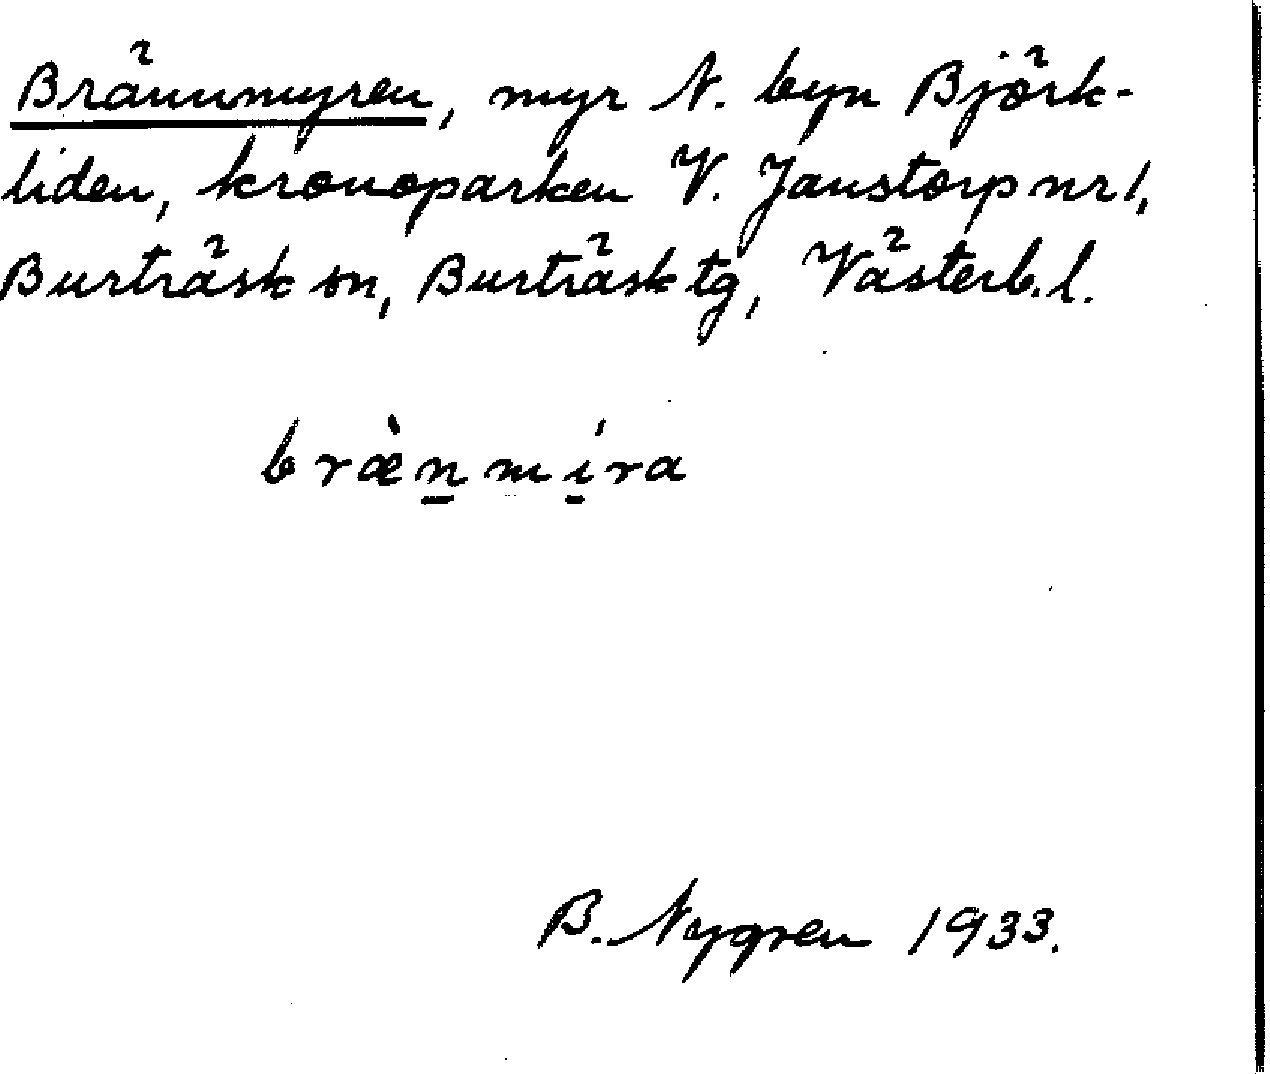 Brännmyren, myr N. byn Björk-
liden, kronoparken V. Janstorp nr 1,
Burträsk sn, Burträsk tg, Västerb. l.
bræ̀n̲mi̲ŕa
B. Nygren 1933.